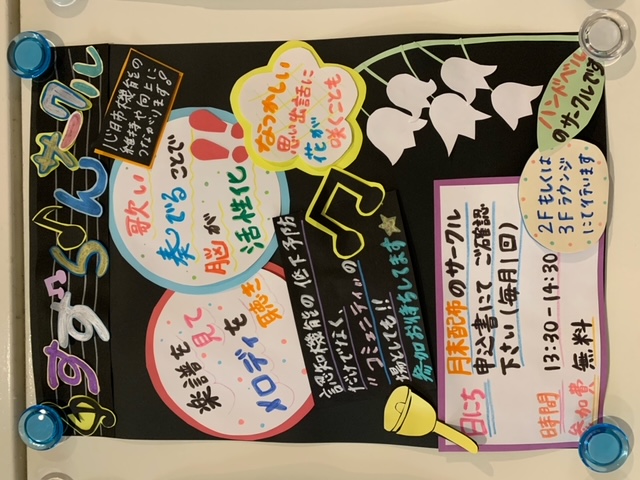 すずらんサークル
ハンドベル
のサークルです
2Fもしくは
3Fラウンジ
にて行います
なつかしい
思い出話に
花が
咲くことも
心肺機能の
維持や向上に
つながります!
歌い
奏でることで
脳が
活性化
楽譜を見て
メロディを聴き
認知機能の低下予防
だけでなく、
"コミュニティ"の
場としても!!
参加お待ちしてます
日にち 月末配布のサークル
申込書にてご確認
下さい(毎月1回)
時間 13:30-14:30
参加費 無料